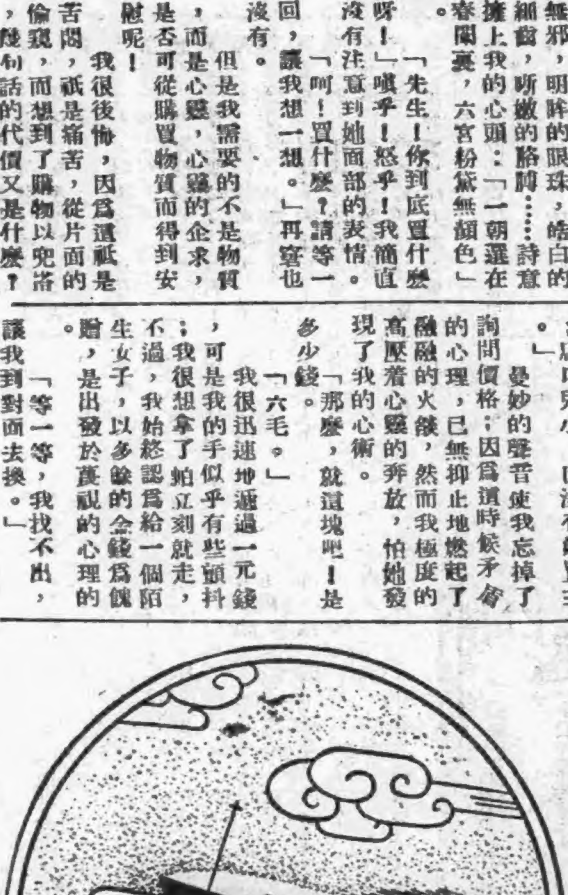 無邪，明眸的眼珠，皓白的
細齒，嘶嫩的胳膊……詩意
擁上我的心頭：「一朝選在
春闌裏，六宮粉黛無顏色」
。
「先生！你到底買什麼
呀！」嗔乎！怒乎！我簡直
沒有注意到她面部的表情。
「呵！買什麼？請等一
回，讓我想一想。」再窘也
沒有。
但是我需要的不是物質
，而是心靈，心靈的企求，
是否可從購買物質而得到安
慰呢！
我很後悔，因爲這祇是
苦悶，祇是痛苦，從片面的
偷窺，而想到了購物以兜搭
，幾句話的代價又是什麼？
。」
曼妙的聲音使我忘掉了
詢問價格；因爲這時候矛盾
的心理，已無抑止地燃起了
融融的火燄，然而我極度的
高壓着心靈的奔放，怕她發
現了我的心術。
「那麼，就這塊吧！是
多少錢。
「六毛。」
我很迅速地遞過一元錢
，可是我的手似乎有些顫抖
；我很想拿了帕立刻就走，
不過，我始終認爲給一個陌
生女子，以多餘的金錢爲餽
贈，是出發於蔑視的心理的
。
「等一等，我找不出，
讓我到對面去換。」